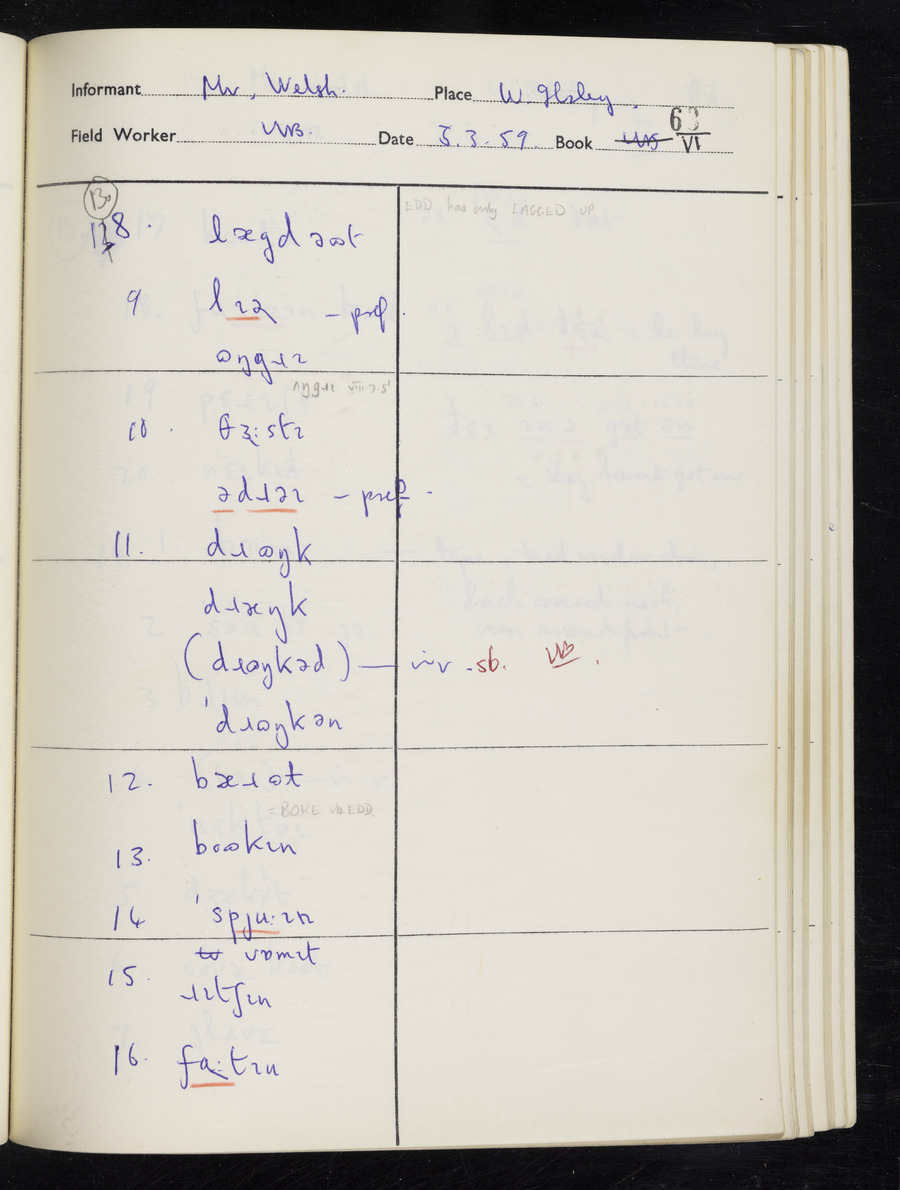 Informant Mr. Welsh. Place W. Ilsley.
Field Worker WB. Date 5.3.59. Book 63 VI
13.
8. lægd əʊt
EDD has only LAGGED UP
9 lɪə – pref.
ʊŋgɹɪ
ʌŋgɹɪ VIII.7.5'
10. θɜ:stɪ
ədɹəɪ – pref.
11. dɹʊŋk
dɹæŋk
(dɹʊŋkəd) — i.v. sb. WB.
'dɹʊŋkən
12. bæɹət
= BOKE vb. EDD.
13. bəʊkɪn
14 'spju:ɪn
15. vɒmɪt
ɹɪtʃɪn
16. fɑ:tɪn